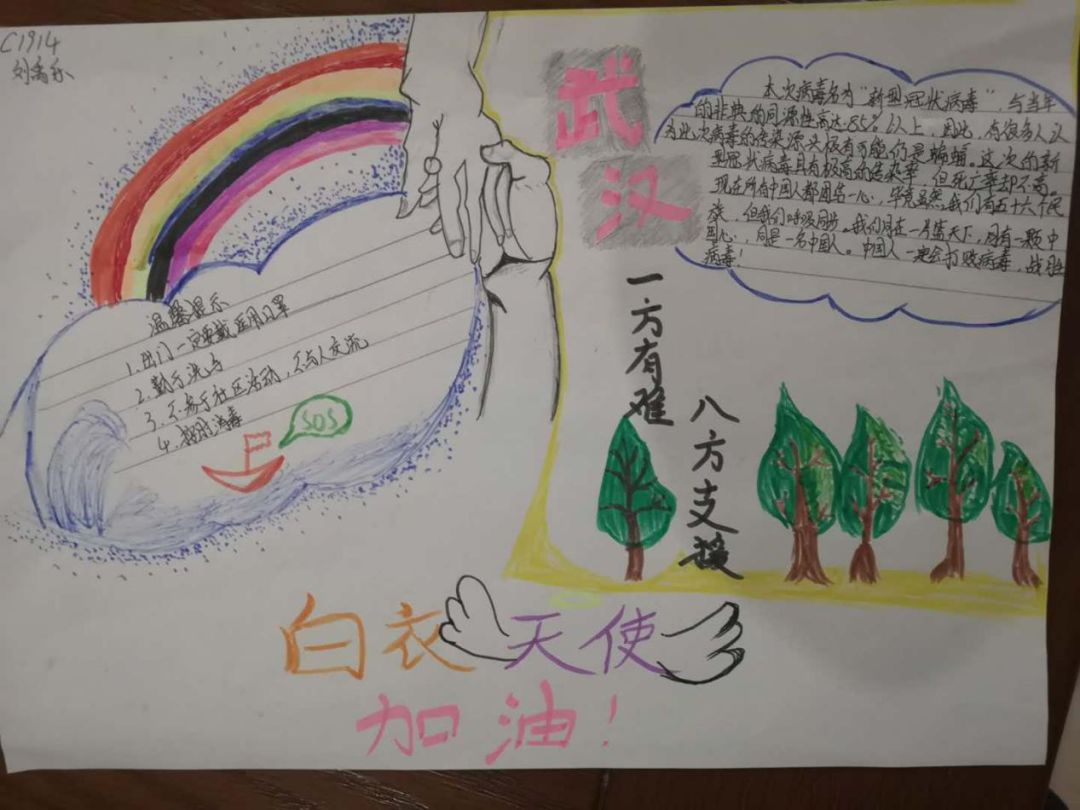 C1914
武
汉
本次病毒名为“新型冠状病毒”，与当年
的非典的同源性高达85%以上，因此，有很多人认
为此次病毒的传染源头极有可能仍是蝙蝠。这次的新
型冠状病毒具有极高的传染率，但死亡率却不高。
现在所有中国人都团结一心，毕竟虽然我们有五十六个民
族，但我们呼吸同步。我们同在一片蓝天下，同有一颗中
国心，同是一名中国人。中国人一定会打败病毒，战胜
病毒！
温馨提示
1.出门一定要戴医用口罩
2.勤于洗手
3.不参于社区活动，不与人交流
4.按时消毒
SOS
一方有难
八方支援
白衣天使
加油！